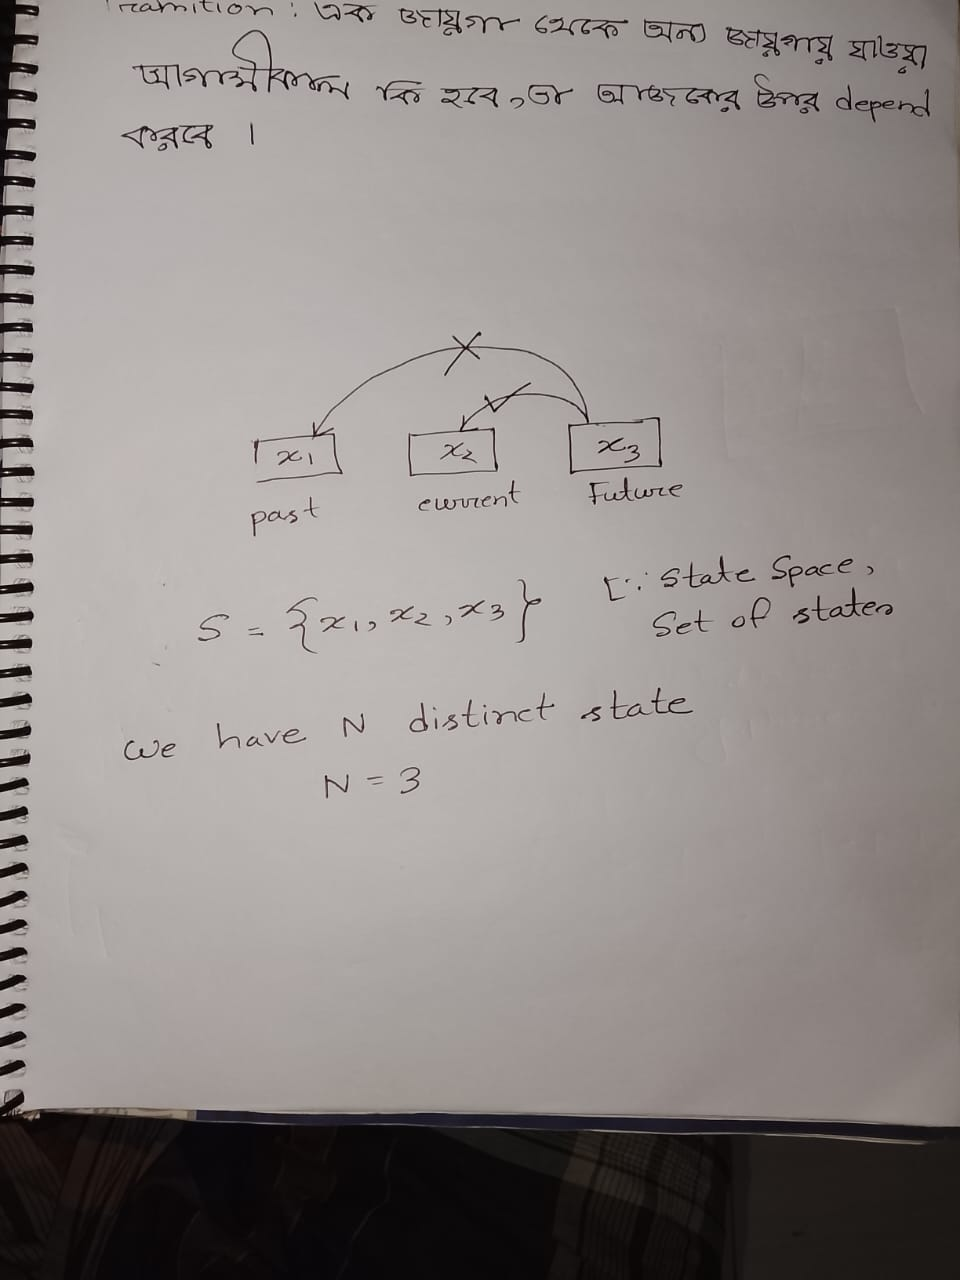 Transition: এক জায়গা থেকে অন্য জায়গায় যাওয়া
আগামীকাল কি হবে, তা আজকের উপর depend
করবে ।
x1 x2 x3
past current Future
S = {x1, x2, x3} [∵ State Space,
Set of states
we have N distinct state
N = 3